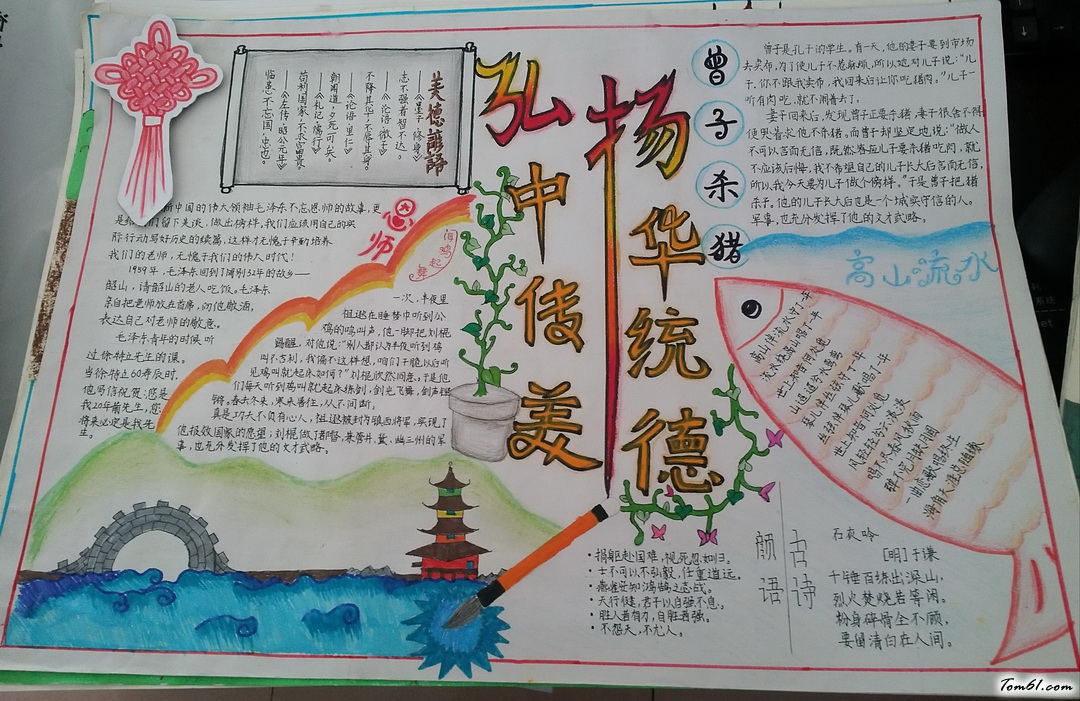 美德谚语
志不强者智不达。
——《墨子·修身》
不降其志,不辱其身。
——《论语·微子》
朝闻道,夕死可矣。
——《论语·里仁》
苟利国家,不求富贵。
——《礼记·儒行》
临患不忘国,忠也。
——《左传·昭公元年》
弘扬
中华
传统
美德
曾子杀猪
曾子是孔子的学生。有一天,他的妻子要到市场
去卖布,为了使儿子不惹麻烦,所以她对儿子说:“儿
子,你不跟我卖布,我回来后让你吃猪肉。”儿子一
听有肉吃,就不闹着去了,
妻子回来后,发现曾子正要杀猪,妻子很舍不得
便哭着求他不杀猪,而曾子却坚定地说:“做人
不可以言而无信,既然答应儿子要杀猪吃肉,就
不应该后悔,我不希望自己的儿子长大后言而无信,
所以我今天要为儿子做个榜样。”于是曾子把猪
杀了。他的儿子长大后也是一个城实守信的人。
军事,也充分发挥了他的文才武略。
恩师
新中国的伟大领袖毛泽东不忘恩师的故事,更
是给我们留下美谈,做出榜样。我们应该用自己的实
际行动写好历史的续篇,这样才无愧于辛勤培养
我们的老师,无愧于我们的伟大时代!
1959年,毛泽东回到了阔别32年的故乡——
韶山,请韶山的老人吃饭。毛泽东
亲自把老师放在首席,向他敬酒,
表达自己对老师的敬意。
毛泽东青年的时候听
过徐特立先生的课。
当徐特立60寿辰时,
他写信祝贺:“您是
我20年前先生,您
将来必定是我先
生。
闻鸡起舞
一次,半夜里
祖逖在睡梦中听到公
鸡的鸣叫声,他一脚把刘琨
踢醒,对他说:“别人都认为半夜听到鸡
叫不吉利,我偏不这样想,咱们干脆以后听
见鸡叫就起床如何?”刘琨欣然同意,于是他
们每天听到鸡叫就起床练剑,剑光飞舞,剑声铿
锵。春去冬来,寒来暑往,从不间断。
真是功夫不负有心人,祖逖被封为镇西将军,实现了
他报效国家的愿望;刘琨做了都督,兼管并、冀、幽三州的军
事,也充分发挥了他的文才武略。
高山流水
高山伴流水守了一年
流水绕高山唱了一年
世上知音何处觅
山遥遥兮水鸢鸢
琴儿伴丝弦守了一年
丝弦伴琴儿歌唱了一年
世上知音何处觅
风轻轻兮水淡淡
唱不尽春风秋雨
一曲恋歌唱终生
海角天涯总相缘
颜语
·捐躯赴国难,视死忽如归。
·士不可以不弘毅,任重道远。
·燕雀安知鸿鹄之志哉。
·天行健,君子以自强不息。
·胜人者有力,自胜者强。
·不怨天,不尤人。
古诗
石灰吟
[明]于谦
千锤百练出深山,
烈火焚烧若等闲。
粉身碎骨全不顾,
要留清白在人间。
Tom61.com